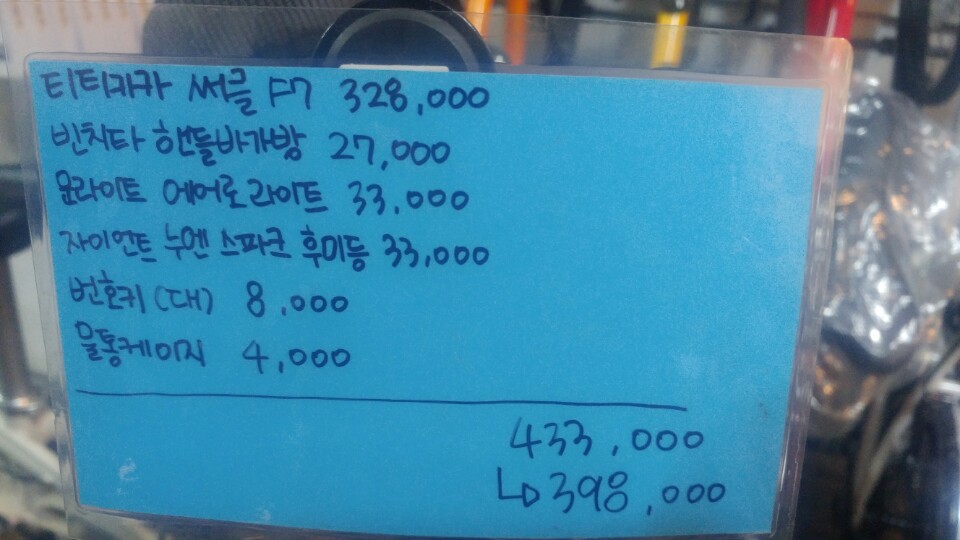 티티카카 써클 F7 328,000
빈치타 핸들바가방 27,000
문라이트 에어로라이트 33,000
자이언트 누멘 스파크 후미등 33,000
번호키(대) 8,000
물통케이지 4,000
433,000
↳398,000